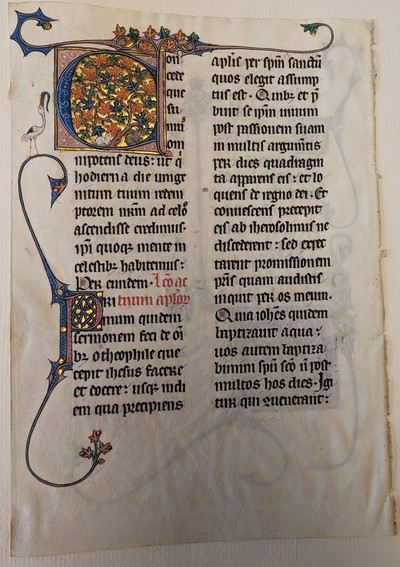 Con
cede
que
su
mus
om
nipotens deus: ut q
hodierna die unige
nitum tuum redem
ptorem nr̄m ad celos
ascendisse credimus.
ip̄i quoq; mente in
celestib; habitemus:
Per eundem. Lc̄o ac
tuum ap̄lor
PRimum quidem
sermonem feci de oī
b; o theophile que
cepit ihesus facere
et docere: usq; in di
em qua precipiens
aplīs per sp̄m sanctū
quos elegit assump
tus est. Quib; et p̄
buit se ip̄m uiuum
post passionem suam
in multis argumētis
per dies quadragin
ta apparens eis: et lo
quens de regno dei. Et
conuescens precepit
eis ab iherosolimis ne
discederent: sed expec
tarent promissionem
pr̄is quam audistis
inquit per os meum.
Quia ioh̄es quidem
baptizauit aqua:
uos autem baptiza
bimini sp̄u sc̄o n̄ post
multos hos dies. Igi
tur qui 9uenerant: